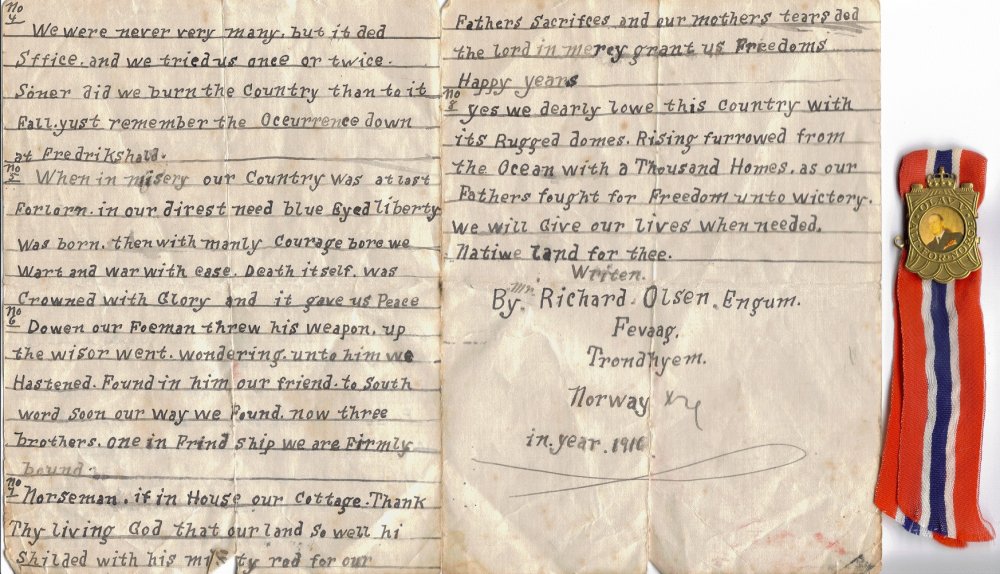 No 4
We were never very many, but it ded
Sffice. and we tried us once or twice.
Soner did we burn the Country than to it
Fall. yust remember the Oceurrence down
at Fredrikshald.
No 5
When in misery our Country was at last
Forlorn. in our direst need blue Eyed liberty
was born. then with manly Courage bore we
Wart and war with ease. Death itself. was
Crowned with Glory and it gave us Peace
No 6
Dowen our Foeman threw his weapon, up
the wisor went. wondering. unto him we
Hastened. Found in him our friend. to South
word soon our way we found. now three
brothers. one in Frind ship we are Firmly
bound.
No 7
Norseman. if in House our Cottage. Thank
Thy living God that our land so well hi
Shilded with his mi ty rod for our
Fathers Sacrifces and our mothers tears ded
the lord in mercy grant us Freedoms
Happy years
No 8
yes we dearly lowe this Country with
its Rugged domes. Rising furrowed from
the Ocean with a Thousand Homes. as our
Fathers fought for Freedom unto wictory.
we will Give our lives when needed.
Natiwe land for thee.
Writen.
By. Mr. Richard. Olsen. Engum.
Fevaag.
Trondhyem.
Norway
in. year. 1916
OLAV V
ALT FOR NORGE